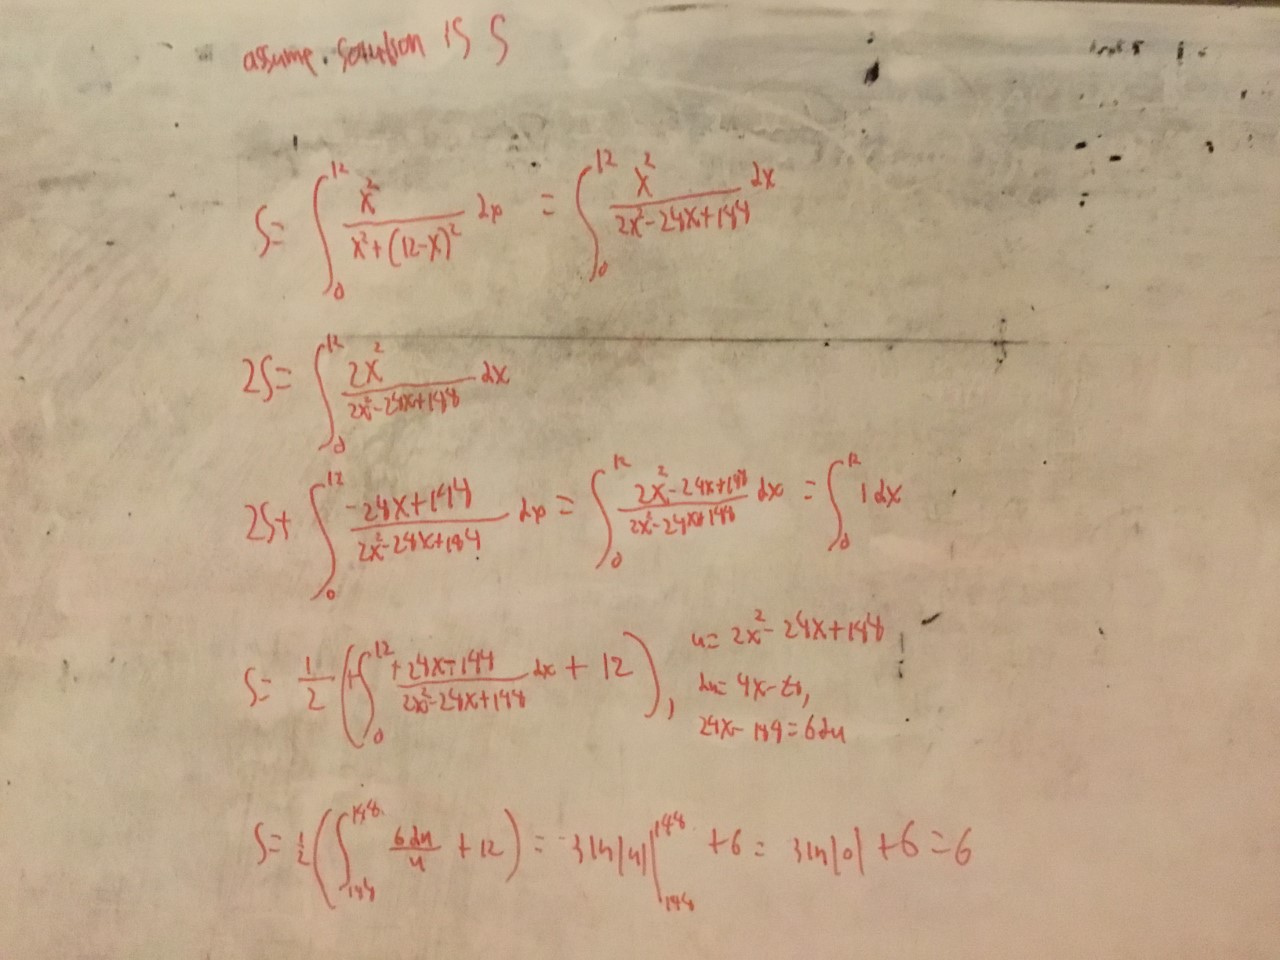 assume. solution is S
S= ∫₀¹² x²/(x²+(12-x)²) dx = ∫₀¹² x²/(2x²-24x+144) dx
2S= ∫₀¹² 2x²/(2x²-24x+144) dx
2S+ ∫₀¹² (-24x+144)/(2x²-24x+144) dx = ∫₀¹² (2x²-24x+144)/(2x²-24x+144) dx = ∫₀¹² 1 dx
S= 1/2 (+∫₀¹² (+24x-144)/(2x²-24x+144) dx + 12), u= 2x²-24x+144
du= 4x-24,
24x-144=6du
S= 1/2 (∫₁₄₄¹⁴⁴ 6du/u + 12) = 3ln|u| |₁₄₄¹⁴⁴ +6 = 3ln|0| +6 =6